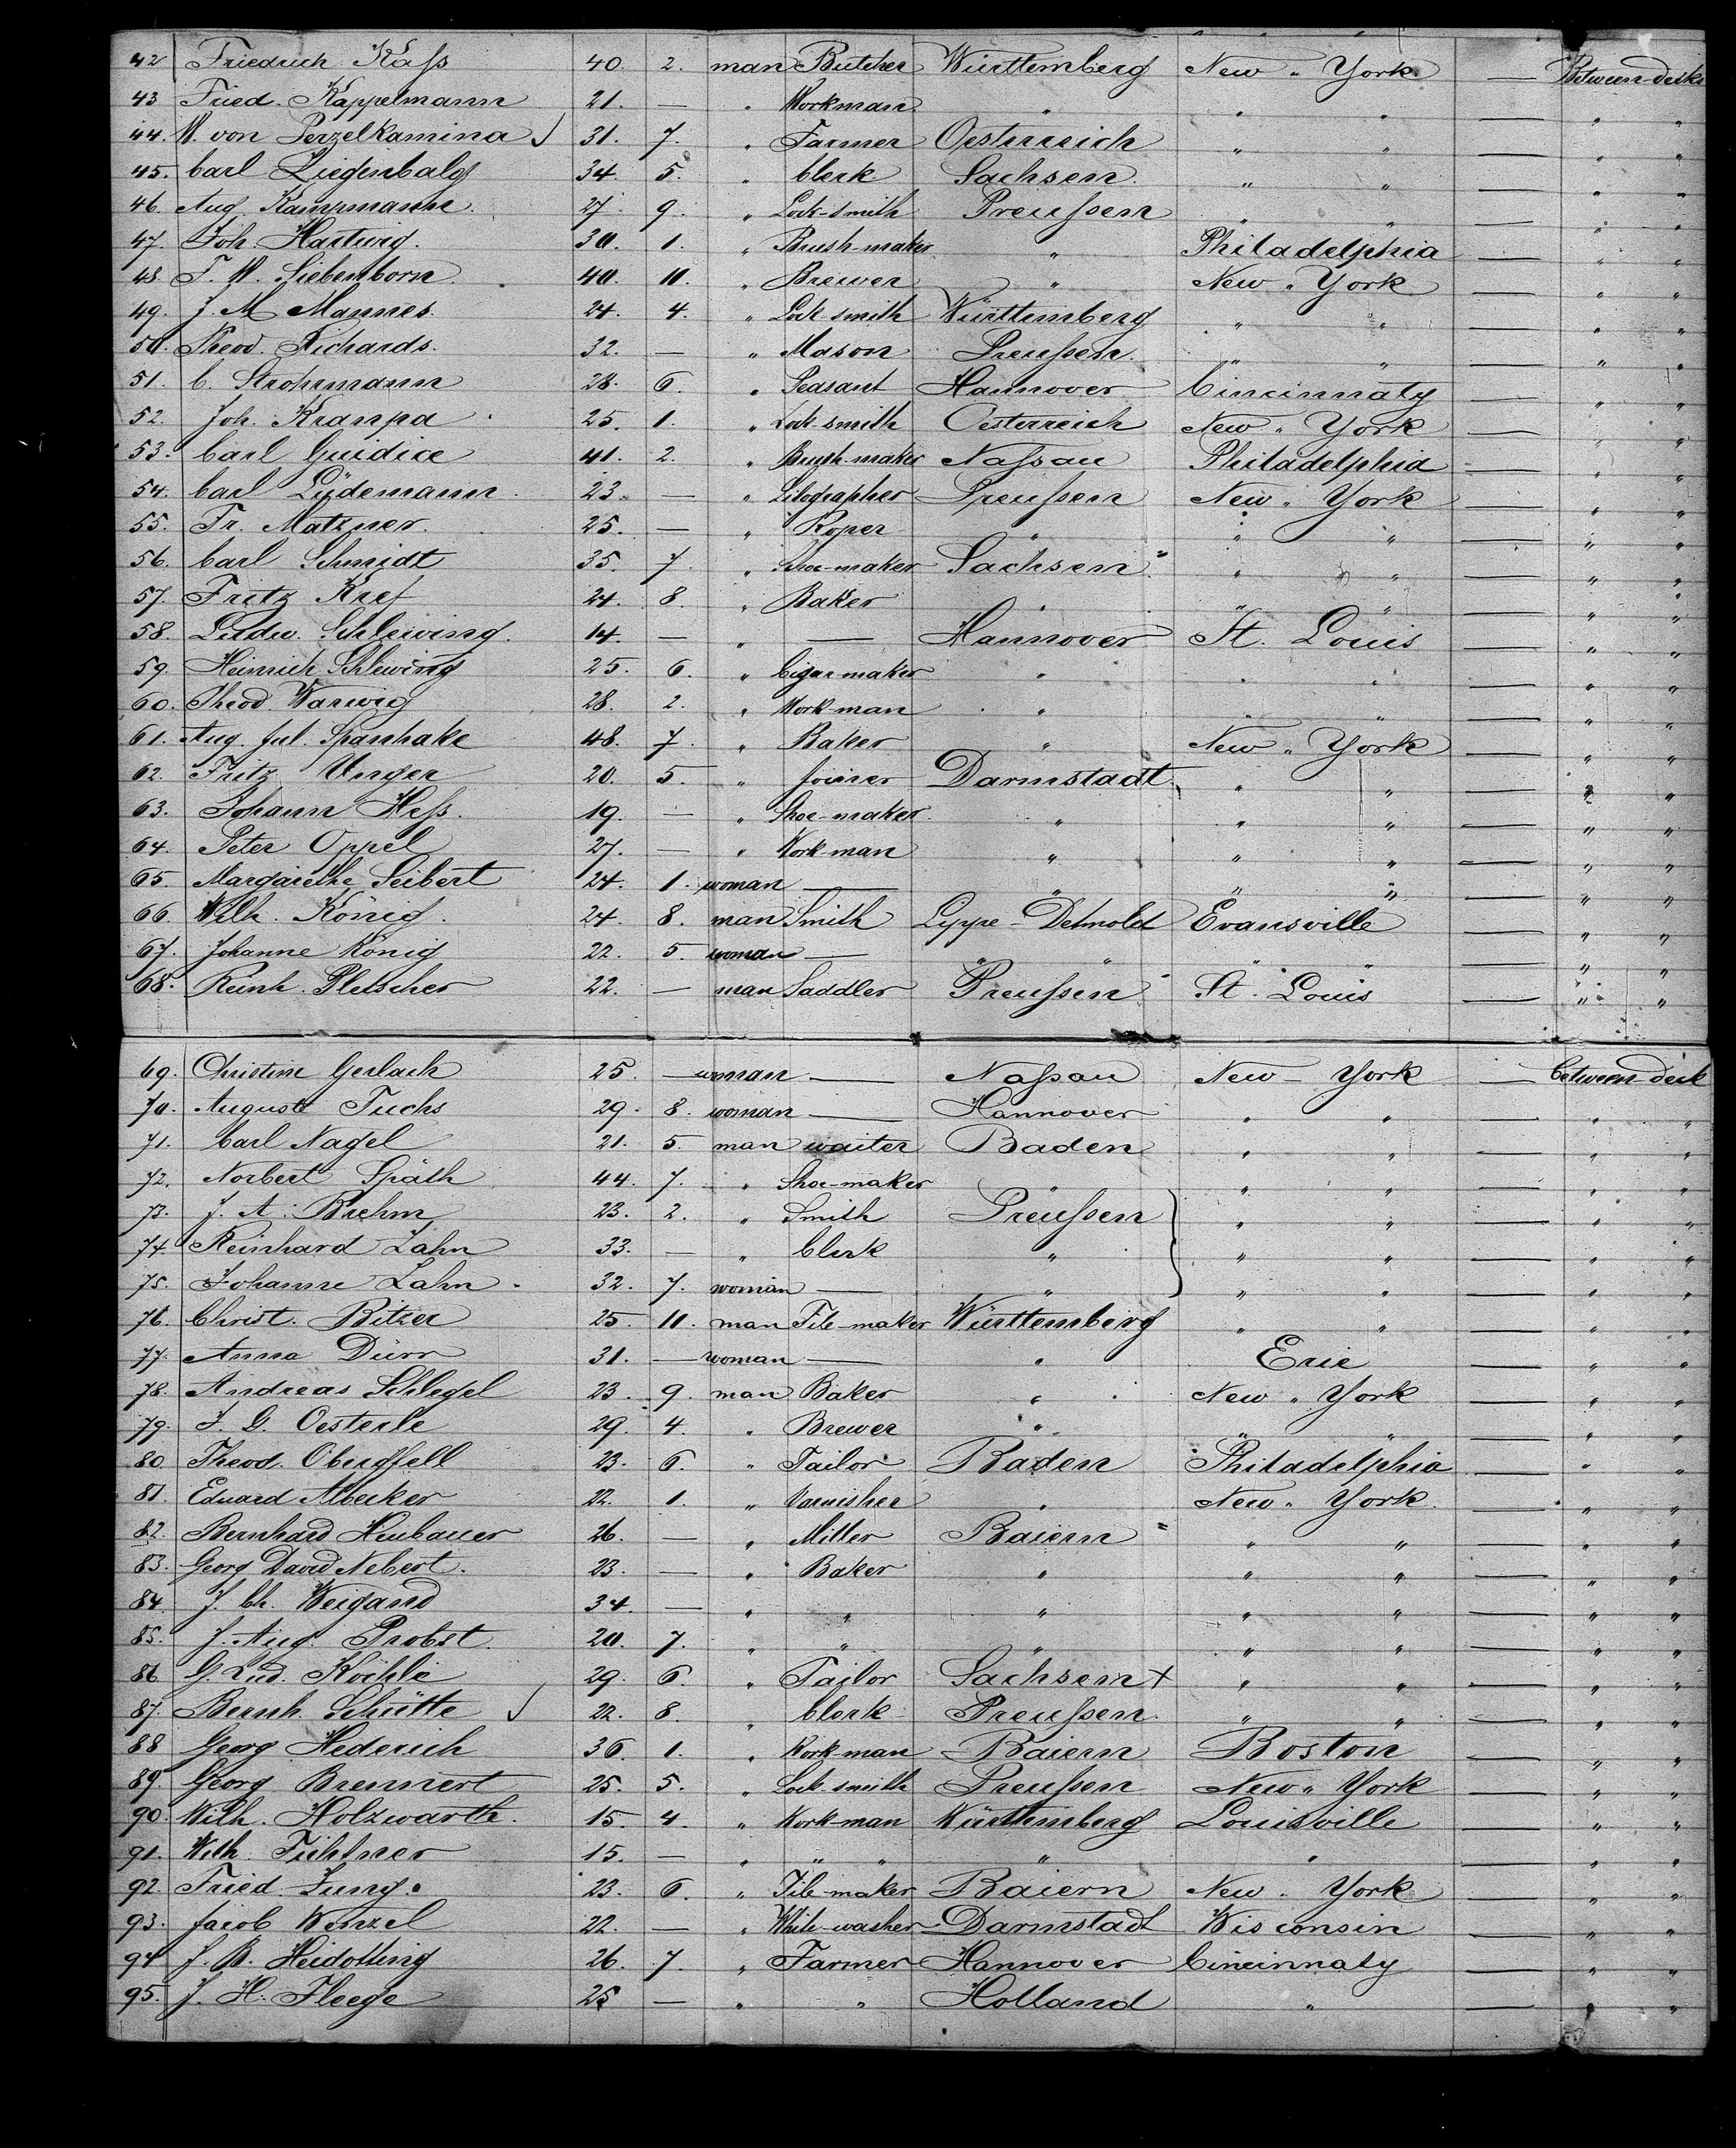 42 Friedrich Kass 40. 2. man Butcher Württemberg New " York — Between-decks
43 Fried. Kappelmann 21. — " Workman " " " — " "
44. W. von Perzelkamina 31. 7. " Farmer Oesterreich " " — " "
45. Carl Ziegenbalg 34. 5. " Clerk Sachsen " " — " "
46. Aug. Kampmann 27. 9. " Lock-smith Preußen " " — " "
47. Joh. Hartwig. 30. 1. " Brush-maker " Philadelphia — " "
48. F. W. Siebenborn. 40. 11. " Brewer " New " York — " "
49. J. M. Mannes. 24. 4. " Lock-smith Württemberg " " — " "
50. Theod. Richards. 32. — " Mason Preußen. " " — " "
51. C. Strohmann 28. 6. " Peasant Hannover Cincinnaty — " "
52. Joh. Krampa 25. 1. " Lock-smith Oesterreich New " York — " "
53. Carl Guidice 41. 2. " Brush-maker Naßau Philadelphia — " "
54. Carl Lüdemann 23. — " Litographer Preußen New " York — " "
55. Fr. Matzner. 25. — " Roper " " " — " "
56. Carl Schmidt 35. 7. " Shoe-maker Sachsen " " — " "
57. Fritz Kref 24. 8. " Baker " " " — " "
58. Ludw. Schlewing. 14. — " — Hannover St. Louis — " "
59. Heinrich Schlewing 25. 6. " Cigar-maker " " " — " "
60. Theod. Warwig 28. 2. " Work-man " " " — " "
61. Aug. Jul. Spanhake 48. 7. " Baker " New " York — " "
62. Fritz Unger 20. 5. " Joiner Darmstadt " " — " "
63. Johann Heß. 19. — " Shoe-maker " " " — " "
64. Peter Oppel 27. — " Work-man " " " — " "
65. Margarethe Seibert 24. 1. woman — " " " — " "
66. Wilh. König. 24. 8. man Smith Lippe-Detmold Evansville — " "
67. Johanne König 22. 5. woman — " " " " — " "
68. Reinh. Pletscher 22. — man Saddler Preußen St. Louis — " "
69. Christine Gerlach 25. — woman — Naßau New - York — between deck
70. Auguste Fuchs 29. 8. woman — Hannover " " — " "
71. Carl Nagel 21. 5. man waiter Baden " " — " "
72. Norbert Späth 44. 7. " Shoe-maker " " " — " "
73. J. A. Brehm 23. 2. " Smith Preußen " " — " "
74. Reinhard Zahn 33. — " Clerk " " " — " "
75. Johanne Zahn 32. 7. woman — " " " — " "
76. Christ. Bitzer 25. 11. man Tile-maker Württemberg " " — " "
77. Anna Dürr 31. — woman — " Erie — " "
78. Andreas Schlegel 23. 9. man Baker " New " York — " "
79. J. G. Oesterle 29. 4. " Brewer " " " — " "
80. Theod. Obergfell 23. 6. " Tailor Baden Philadelphia — " "
81. Eduard Albecker 22. 1. " Varnisher " New " York — " "
82. Bernhard Heubauer 26. — " Miller Baiern " " — " "
83. Georg David Nebert. 23. — " Baker " " " — " "
84. J. Ch. Weigand 34. — " " " " " — " "
85. J. Aug. Probst 20. 7. " " " " " — " "
86 G. Lud. Kochle 29. 6. " Tailor Sachsen X " " — " "
87. Bernh. Schütte 22. 8. " Clerk Preußen " " — " "
88 Georg Hederich 36. 1. " Work-man Baiern Boston — " "
89. Georg Brennert 25. 5. " Lock-smith Preußen New " York — " "
90. Wilh. Holzwarth. 15. 4. " Work-man Württemberg Louisville — " "
91. Wilh. Fichtner 15. — " " " " " — " "
92. Fried. Jung. 23. 6. " Tile-maker Baiern New " York — " "
93. Jacob Wenzel 22. — " White-washer Darmstadt Wisconsin — " "
94 J. B. Heidotting 26. 7. " Farmer Hannover Cincinnaty — " "
95. J. H. Fleege 25 — " " Holland " — " "